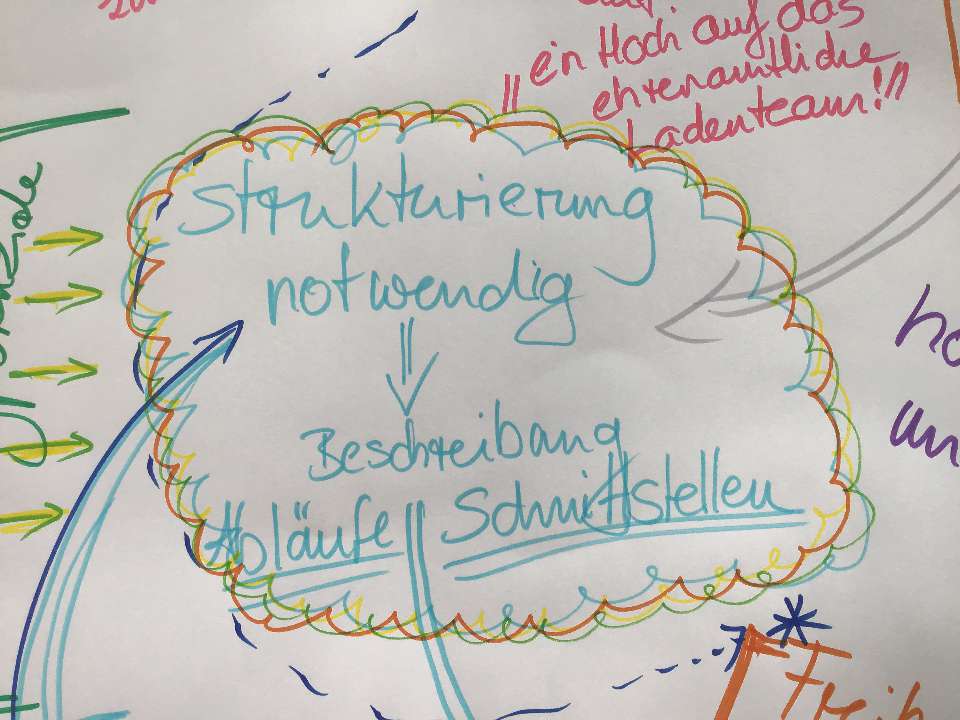 "ein Hoch auf das
ehrenamtliche
Ladenteam!"
Strukturierung
notwendig
Beschreibung
Abläufe Schnittstellen